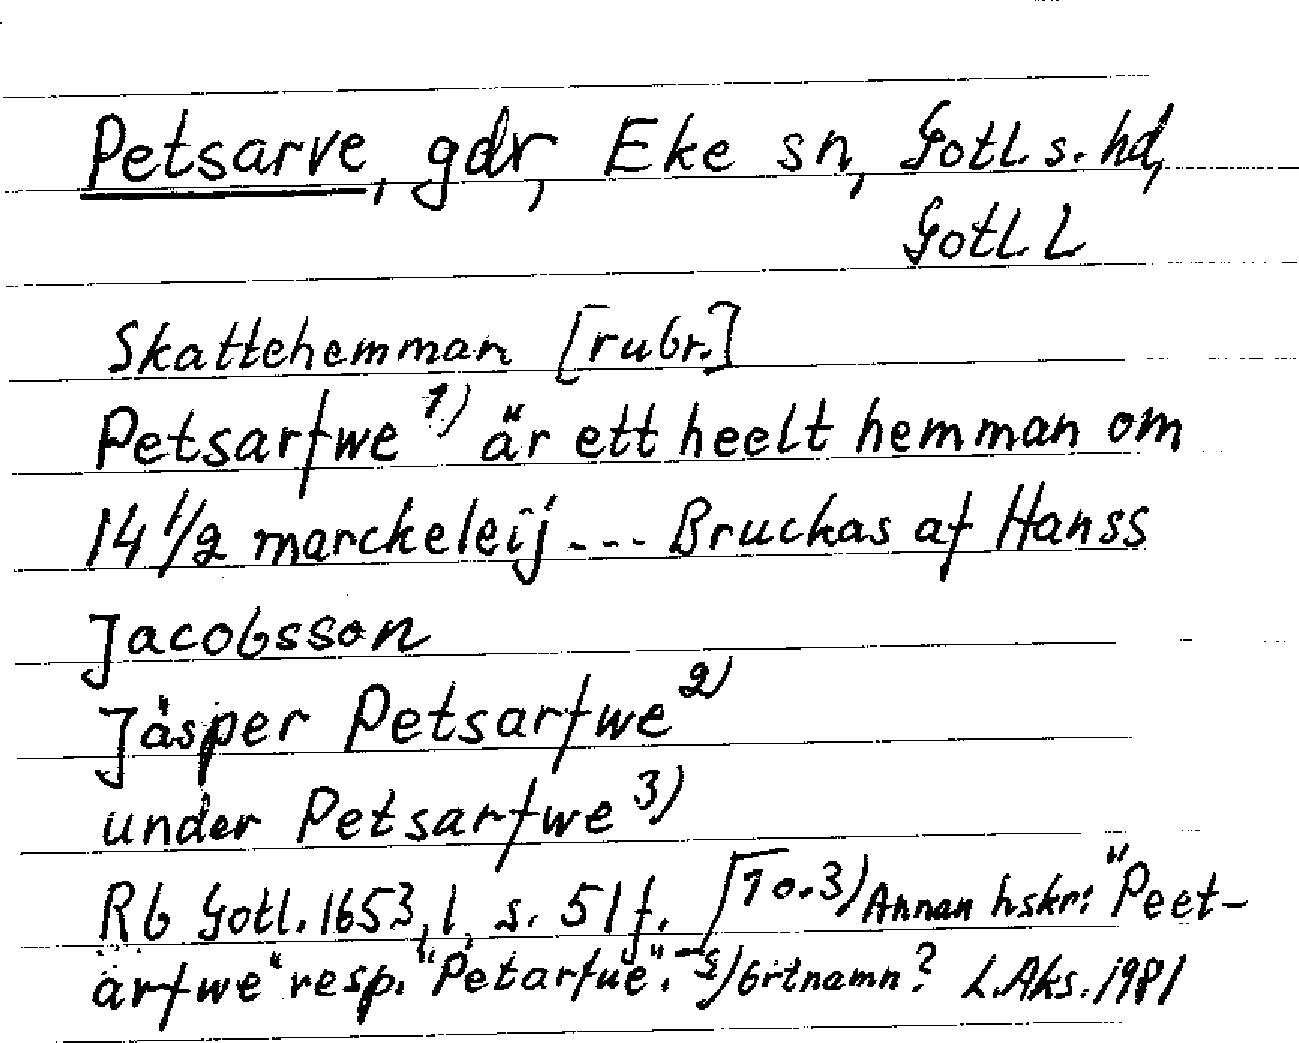 Petsarve, gdr, Eke sn, Gotl s. hd,
Gotl. L
Skattehemman [rubr.]
Petsarfwe 1) är ett heelt hemman om
14 1/2 marckeleij --- Bruckas af Hanss
Jacobsson
Jåsper Petsarfwe 2)
under Petsarfwe 3)
Rb Gotl. 1653, 1, s. 51 f. [1 o. 3) Annan hskr: "Peet-
ärfwe" resp. "Petarfue". - 2) Ortnamn? L. Aks. 1981